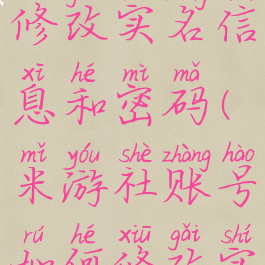 修改实名信
xī hé mì mǎ
息和密码(
mǐ yóu shè zhàng hào
米游社账号
rú hé xiū gǎi shí
如何修改实